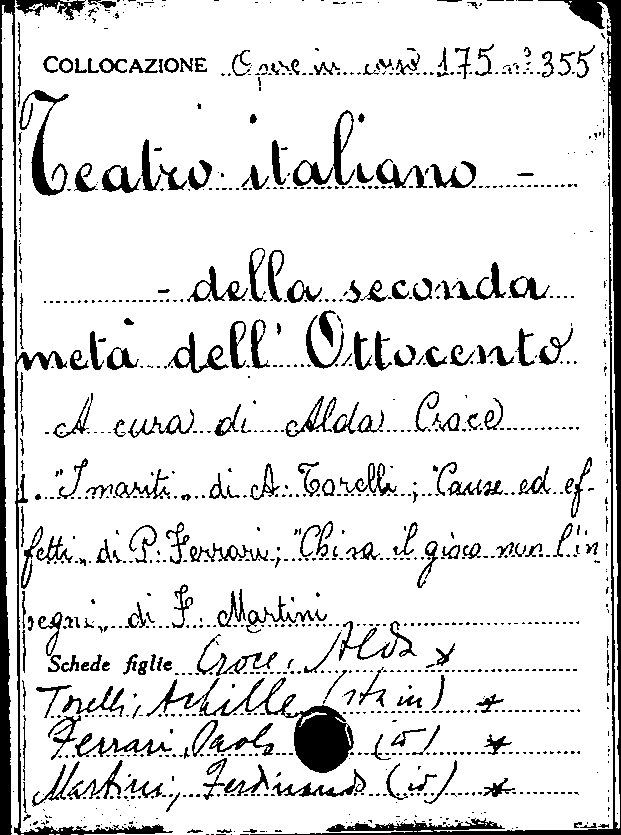 COLLOCAZIONE Opere in corso 175 n° 355
Teatro italiano -
- della seconda
metà dell' Ottocento
A cura di Alda Croce
1. "I mariti" di A. Torelli; "Cause ed ef-
fetti" di P. Ferrari; "Chi sa il gioco non l'in
segni" di F. Martini
Schede figlie Croce, Alda *
Torelli, Achille (sta in) *
Ferrari, Paolo (id) *
Martini, Ferdinando (id) *